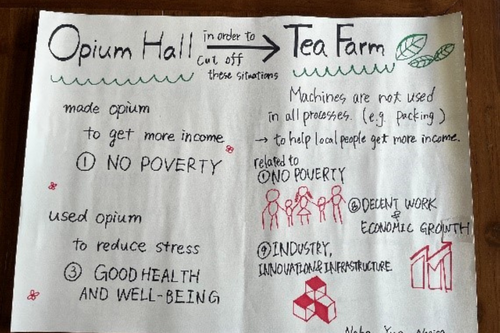 Opium Hall
in order to
cut off
these situations
Tea Farm
made opium
to get more income
① NO POVERTY
used opium
to reduce stress
③ GOOD HEALTH
AND WELL-BEING
Machines are not used
in all processes. (e.g. packing)
→ to help local people get more income.
related to
① NO POVERTY
⑧ DECENT WORK
&
ECONOMIC GROWTH
⑨ INDUSTRY,
INNOVATION & INFRASTRUCTURE